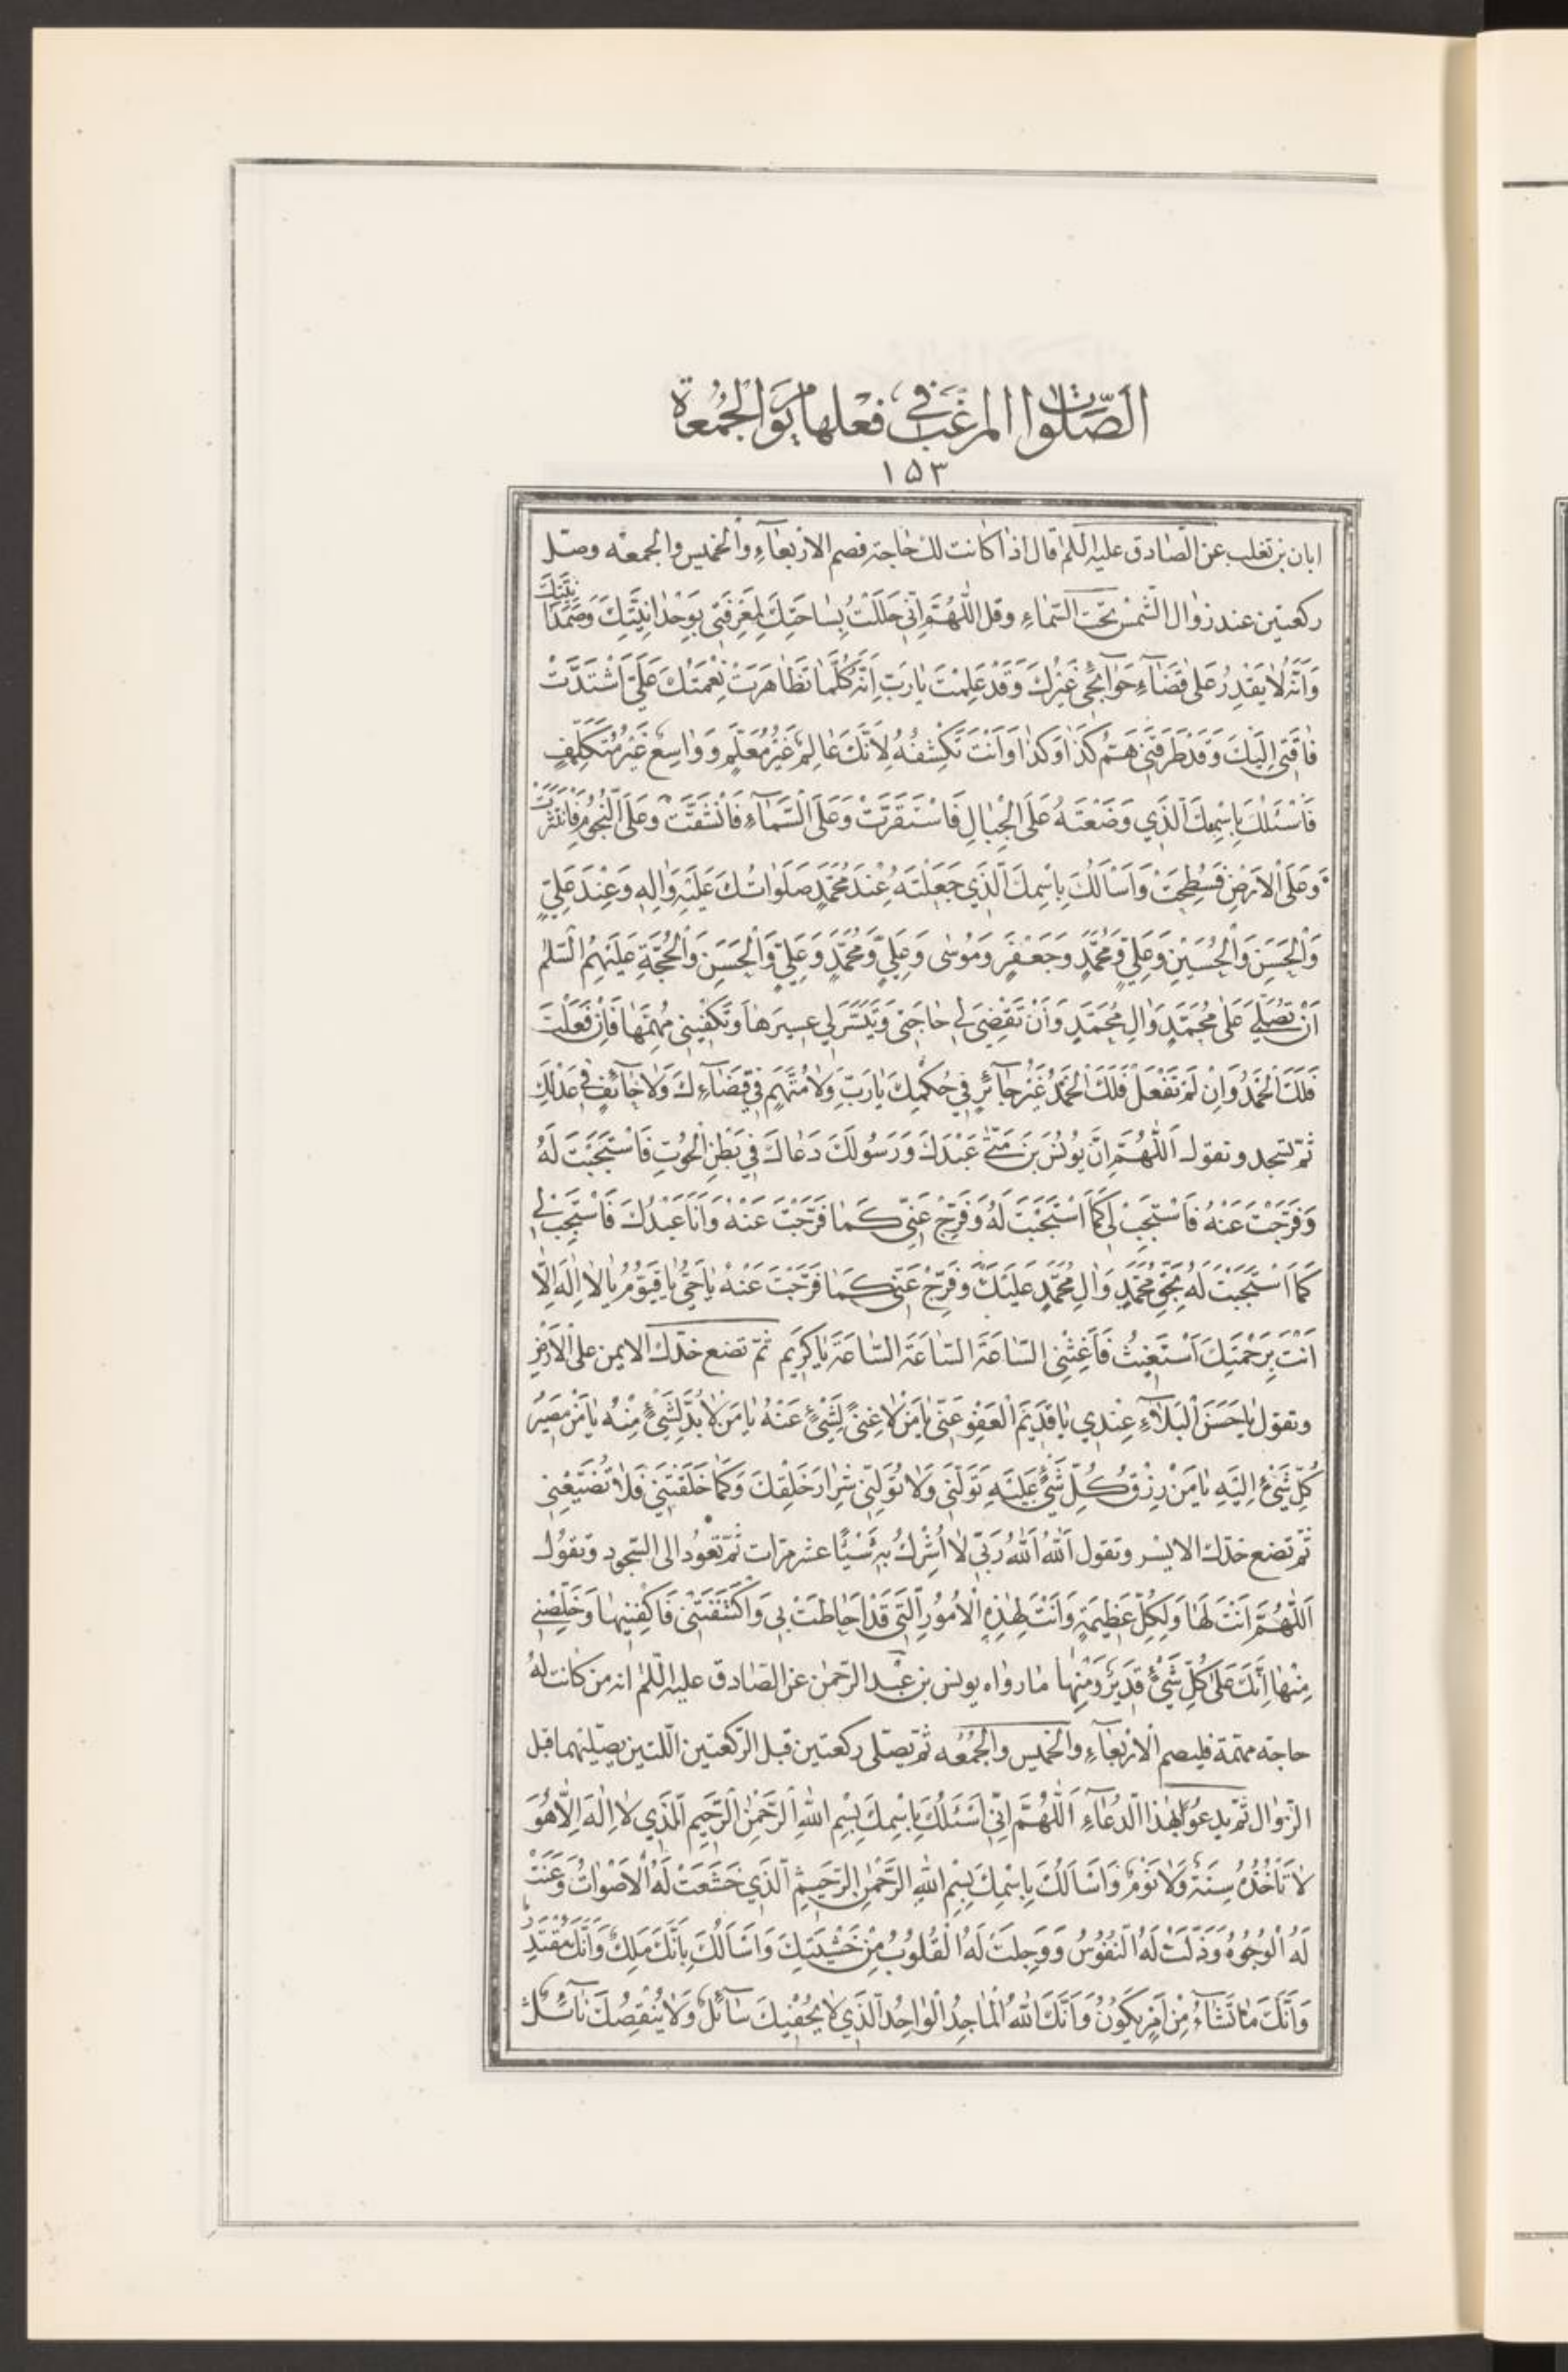 الصَّلَوات المرغَّب في فعلها يَوم الجُمُعة
١٥٣
ابان بن تغلب عن الصّادق عليه السّلم قال اذا كانت لك حاجة فصم الاربعآءِ والخميس والجمعه وصلّ
ركعتين عند زوال الشّمس تحت السّماءِ وقل اللّٰهُمَّ اِنّى حَلَلْتُ بِسٰاحَتِكَ لِمَعْرِفَتى بِوَحْدٰانِيَّتِكَ وَصَمَدٰانِيَّتِكَ
وَاَنَّهُ لٰا يَقْدِرُ عَلىٰ قَضٰآءِ حَوٰآئِجى غَيْرُكَ وَقَدْ عَلِمْتَ يٰا رَبِّ اَنَّهُ كُلَّمٰا تَظٰاهَرَتْ نِعْمَتُكَ عَلَىَّ اشْتَدَّتْ
فٰاقَتى اِلَيْكَ وَقَدْ طَرَقَنى هَمُّ كَذٰا وَكَذٰا وَاَنْتَ تَكْشِفُهُ لِاَنَّكَ عٰالِمٌ غَيْرُ مُعَلَّمٍ وَوٰاسِعٌ غَيْرُ مُتَكَلِّفٍ
فَاَسْئَلُكَ بِاسْمِكَ الَّذى وَضَعْتَهُ عَلَى الْجِبٰالِ فَاسْتَقَرَّتْ وَعَلَى السَّمٰآءِ فَانْشَقَّتْ وَعَلَى النُّجُومِ فَانْتَثَرَتْ
وَعَلَى الْاَرْضِ فَسُطِحَتْ وَاَسْاَلُكَ بِاسْمِكَ الَّذى جَعَلْتَهُ عِنْدَ مُحَمَّدٍ صَلَوٰاتُكَ عَلَيْهِ وَاٰلِهِ وَعِنْدَ عَلِىٍّ
وَالْحَسَنِ وَالْحُسَيْنِ وَعَلِىٍّ وَمُحَمَّدٍ وَجَعْفَرٍ وَمُوسٰى وَعَلِىٍّ وَمُحَمَّدٍ وَعَلِىٍّ وَالْحَسَنِ وَالْحُجَّةِ عَلَيْهِمُ السّلٰم
اَنْ تُصَلِّىَ عَلىٰ مُحَمَّدٍ وَاٰلِ مُحَمَّدٍ وَاَنْ تَقْضِىَ لى حٰاجَتى وَتُيَسِّرَ لى عَسيرَهٰا وَتَكْفِيَنى مُهِمَّهٰا فَاِنْ فَعَلْتَ
فَلَكَ الْحَمْدُ وَاِنْ لَمْ تَفْعَلْ فَلَكَ الْحَمْدُ غَيْرَ جٰآئِرٍ فى حُكْمِكَ يٰا رَبِّ وَلٰا مُتَّهَمٍ فى قَضٰآءِكَ وَلٰا حٰآئِفٍ فى عَدْلِكَ
ثمّ تسجد وتقول اَللّٰهُمَّ اِنَّ يُونُسَ بْنَ مَتّىٰ عَبْدَكَ وَرَسُولَكَ دَعٰاكَ فى بَطْنِ الْحُوتِ فَاسْتَجَبْتَ لَهُ
وَفَرَّجْتَ عَنْهُ فَاسْتَجِبْ لى كَمَا اسْتَجَبْتَ لَهُ وَفَرِّجْ عَنّى كَمٰا فَرَّجْتَ عَنْهُ وَاَنَا عَبْدُكَ فَاسْتَجِبْ لى
كَمَا اسْتَجَبْتَ لَهُ بِحَقِّ مُحَمَّدٍ وَاٰلِ مُحَمَّدٍ عَلَيْكَ وَفَرِّجْ عَنّى كَمٰا فَرَّجْتَ عَنْهُ يٰا حَىُّ يٰا قَيُّومُ يٰا لٰا اِلٰهَ اِلّٰا
اَنْتَ بِرَحْمَتِكَ اَسْتَغيثُ فَاَغِثْنى السّٰاعَةَ السّٰاعَةَ السّٰاعَةَ يٰا كَريم ثمّ تضع خدّك الايمن على الارض
وتقول يٰا حَسَنَ الْبَلٰآءِ عِنْدى يٰا قَديمَ الْعَفْوِ عَنّى يٰا مَنْ لٰا غِنىً لِشَىْءٍ عَنْهُ يٰا مَنْ لٰا بُدَّ لِشَىْءٍ مِنْهُ يٰا مَنْ مَصيرُ
كُلِّ شَىْءٍ اِلَيْهِ يٰا مَنْ رِزْقُ كُلِّ شَىْءٍ عَلَيْهِ تَوَلَّنى وَلٰا تُوَلِّنى شِرٰارَ خَلْقِكَ وَكَمٰا خَلَقْتَنى فَلٰا تُضَيِّعْنى
ثمّ تضع خدّك الايسر وتقول اَللّٰهُ اَللّٰهُ رَبّى لٰا اُشْرِكُ بِهِ شَيْئًا عشر مرّات ثمّ تعود الى السّجود وتقول
اَللّٰهُمَّ اَنْتَ لَهٰا وَلِكُلِّ عَظيمَةٍ وَاَنْتَ لِهٰذِهِ الْاُمُورِ الَّتى قَدْ اَحٰاطَتْ بى وَاكْتَنَفَتْنى فَاكْفِنيهٰا وَخَلِّصْنى
مِنْهٰا اِنَّكَ عَلىٰ كُلِّ شَىْءٍ قَديرٌ وَمِنْهٰا مٰا رواه يونس بن عبد الرّحمٰن عن الصّادق عليه السّلم انه من كانت له
حاجة مهمّة فليصم الاربعآءِ والخميس والجمعه ثمّ يصلّى ركعتين قبل الرّكعتين اللّتين يصلّيهما قبل
الزّوال ثمّ يدعو بهٰذا الدّعآءِ اَللّٰهُمَّ اِنّى اَسْئَلُكَ بِاسْمِكَ بِسْمِ اللّٰهِ الرَّحْمٰنِ الرَّحيمِ الَّذى لٰا اِلٰهَ اِلّٰا هُوَ
لٰا تَأْخُذُهُ سِنَةٌ وَلٰا نَوْمٌ وَاَسْاَلُكَ بِاسْمِكَ بِسْمِ اللّٰهِ الرَّحْمٰنِ الرَّحيمِ الَّذى خَشَعَتْ لَهُ الْاَصْوٰاتُ وَعَنَتْ
لَهُ الْوُجُوهُ وَذَلَّتْ لَهُ النُّفُوسُ وَوَجِلَتْ لَهُ الْقُلُوبُ مِنْ خَشْيَتِكَ وَاَسْاَلُكَ بِاَنَّكَ مَلِكٌ وَاَنَّكَ مُقْتَدِرٌ
وَاَنَّكَ مٰا تَشٰآءُ مِنْ اَمْرٍ يَكُونُ وَاَنَّكَ اللّٰهُ الْمٰاجِدُ الْوٰاحِدُ الَّذى لٰا يُحْفيكَ سٰآئِلٌ وَلٰا يُنْقِصُكَ نٰآئِلٌ